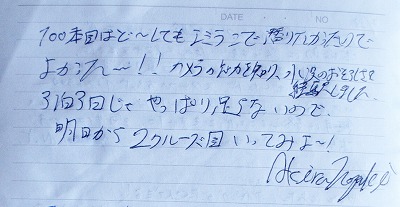 DATE NO
100本目はど〜してもミラニで潜りたかったので
よかった〜!! カメラの 水没のおそろしさを経験しました
3泊3日じゃ やっぱり足らないので、
明日から 2クルーズ目 いってみよ〜!
Akira